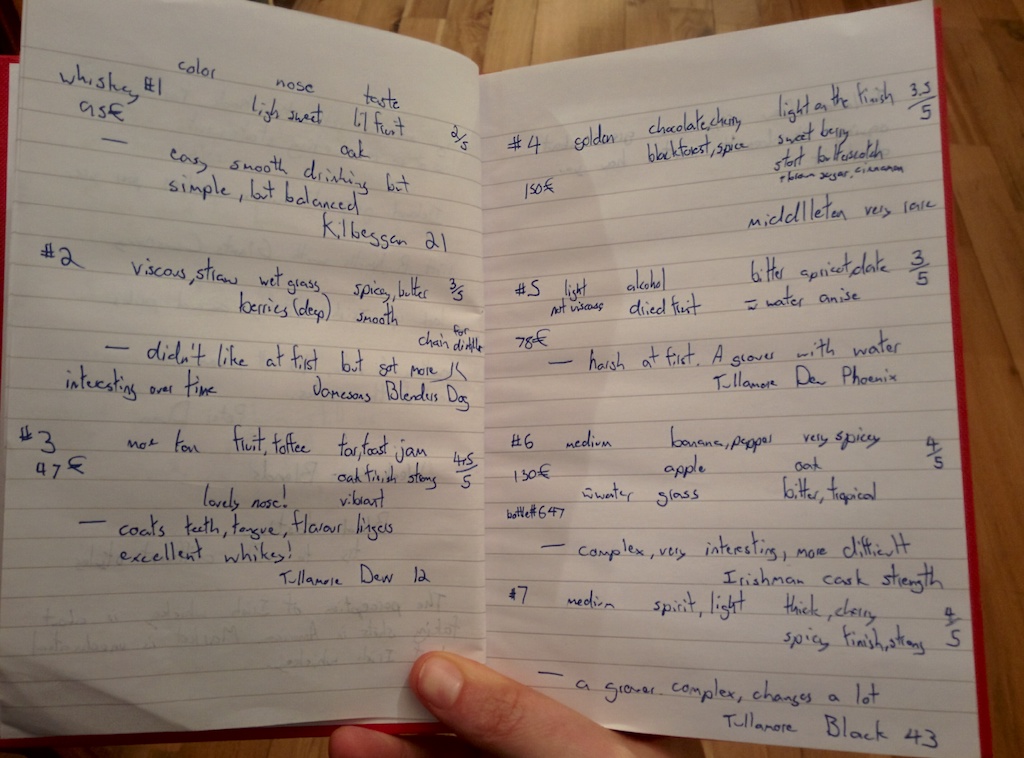 color nose taste
whiskey #1 ligh sweet lil fruit 2/5
95€ oak
— easy smooth drinking but
simple, but balanced
Kilbeggan 21
#2 viscous, straw wet grass spicy, butter 3/5
berries (deep) smooth
for
chain distille
— didn't like at first but got more
interesting over time Jamesons Blenders Dog
#3 more tan fruit, toffee tar, toast jam 4.5/5
47€ oak finish strong
lovely nose! vibrant
— coats teeth, tongue, flavour lingers
excellent whikey!
Tullamore Dew 12
#4 golden chocolate, cherry light on the finish 3.5/5
blackforest, spice sweet berry
start butterscotch
150€ + brown sugar, cinnamon
middlleton very rare
#5 light alcohol bitter apricot, date 3/5
not viscous dried fruit w̄ water anise
78€
— harsh at first. A grower with water
Tullamore Dew Phoenix
#6 medium banana, pepper very spicy 4/5
130€ apple oak
w̄ water grass bitter, tropical
bottle #647
— complex, very interesting, more difficult
Irishman cask strength
#7 medium spirit, light thick, cherry 4/5
spicy finish, strong
— a grower. complex, changes a lot
Tullamore Black 43